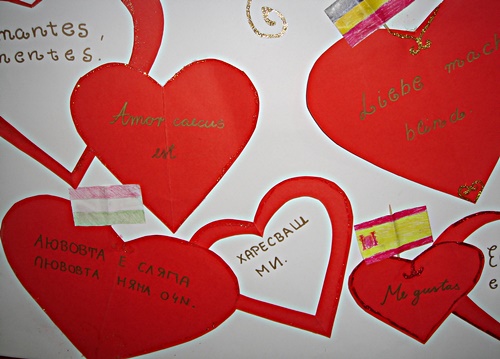 mantes,
nentes.
Amor caecus
est
Liebe mach
blind
ЛЮБОВТА Е СЛЯПА
ЛЮБОВТА НЯМА ОЧИ.
ХАРЕСВАШ
МИ.
Me gustas